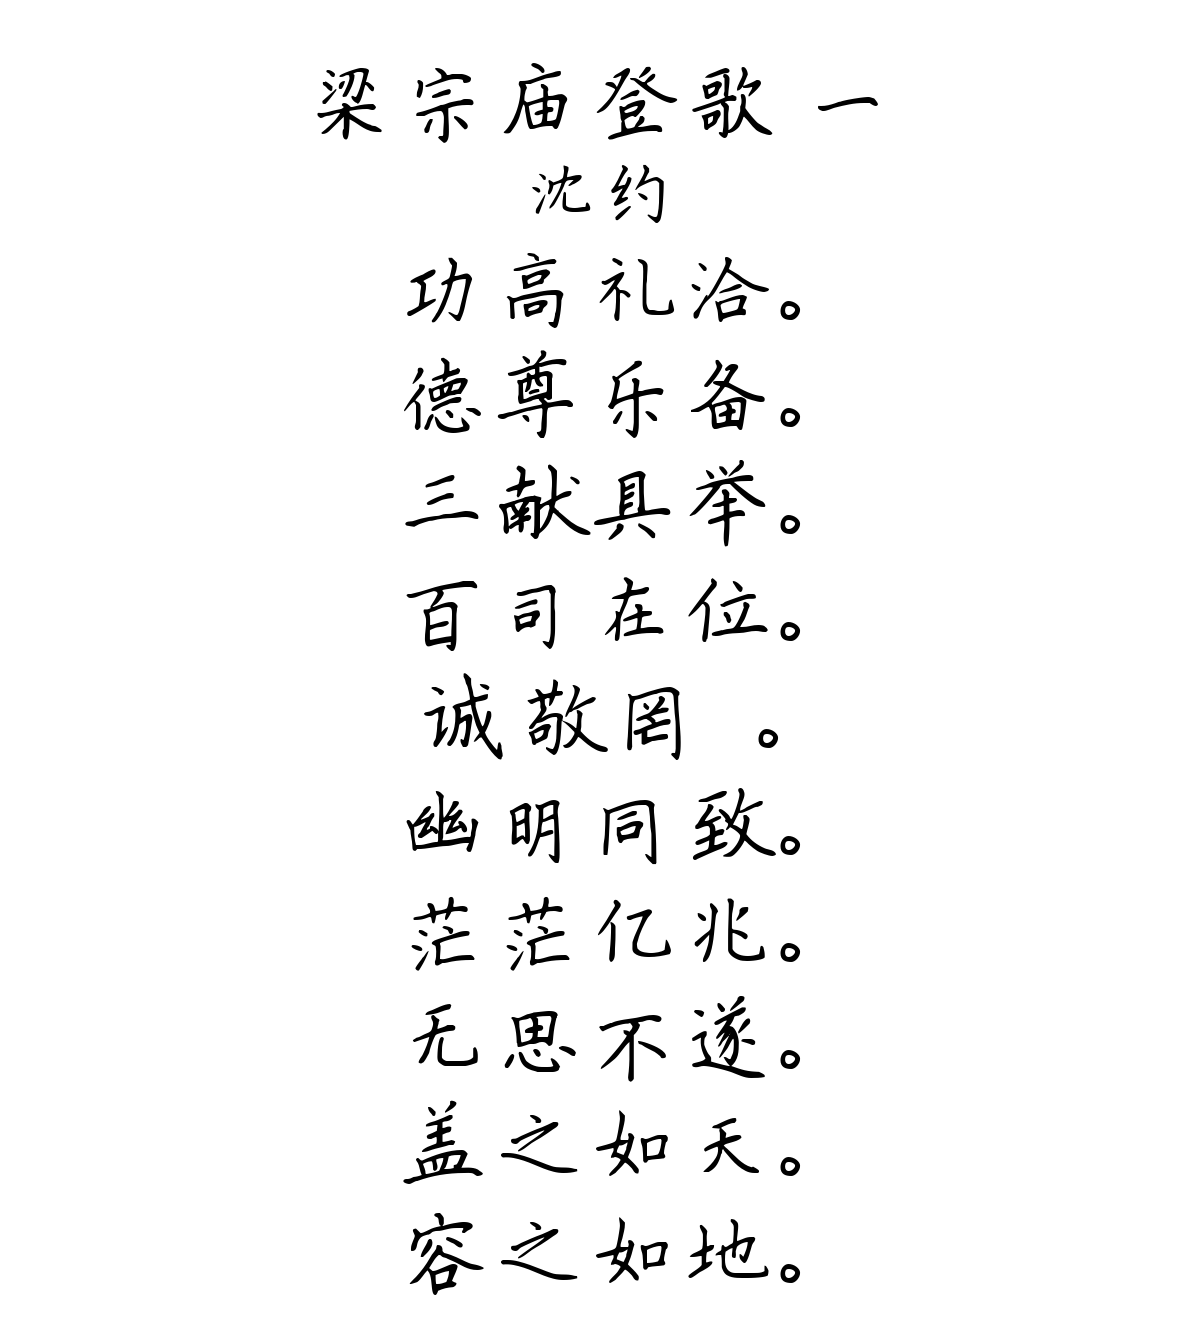 梁宗庙登歌 一
沈约
功高礼洽。
德尊乐备。
三献具举。
百司在位。
诚敬罔 。
幽明同致。
茫茫亿兆。
无思不遂。
盖之如天。
容之如地。